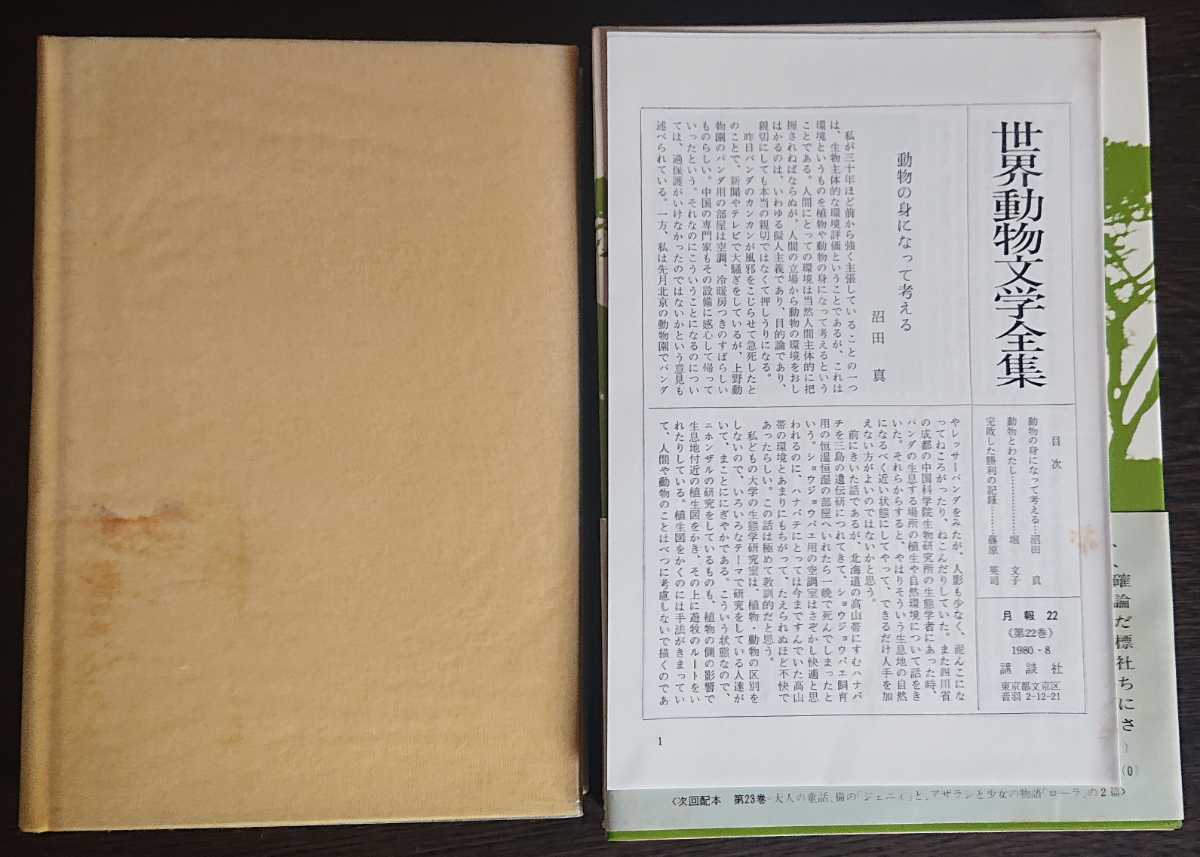 世界動物文学全集
目次
動物の身になって考える…沼田　真
動物とわたし………………堀　文子
完敗した勝利の記録………藤原　英司
月報 22
(第22巻)
1980・8
講談社
東京都文京区
音羽 2-12-21
動物の身になって考える
沼田　真
私が三十年ほど前から強く主張していることの一つ
は、生物主体的な環境評価ということであるが、これは
環境というものを植物や動物の身になって考えるという
ことである。人間にとっての環境は当然人間主体的に把
握されねばならぬが、人間の立場から動物の環境をおし
はかるのは、いわゆる擬人主義であり、目的論であり、
親切にしても本当の親切ではなくて押しうりになる。
昨日パンダのカンカンが風邪をこじらせて急死したと
のことで、新聞やテレビで大騒ぎをしているが、上野動
物園のパンダ用の部屋は空調、冷暖房つきのすばらしい
ものらしい。中国の専門家もその設備に感心して帰って
いったという。それなのにこういうことになるのについ
ては、過保護がいけなかったのではないかという意見も
述べられている。一方、私は先月北京の動物園でパンダ
やレッサーパンダをみたが、人影も少なく、泥んこにな
ってねころがったり、ねこんだりしていた。また四川省
の成都の中国科学院生物研究所の生態学者にあった時、
パンダの生息する場所の植生や自然環境について話をき
いた。それらからすると、やはりそういう生息地の自然
になるべく近い状態にしてやって、できるだけ人手を加
えない方がよいのではないかと思う。
前にきいた話であるが、北海道の高山帯にすむハナバ
チを三島の遺伝研につれてきて、ショウジョウバエ飼育
用の恒温恒湿の部屋へいれたら一晩で死んでしまったと
いう。ショウジョウバエ用の空調室はさぞかし快適と思
われるのに、ハナバチにとっては今まですんでいた高山
帯の環境とあまりにもちがって、たえられぬほど不快で
あったらしい。この話は極めて教訓的だと思う。
私どもの大学の生態学研究室は、植物・動物の区別を
しないので、いろいろなテーマで研究をしている人達が
いて、まことににぎやかである。こういう状態なので、
ニホンザルの研究をしているものも、植物の側の影響で
生息地付近の植生図をかき、その上に遊牧のルートをい
れたりしている。植生図をかくのには手法がきまってい
て、人間や動物のことはべつに考慮しないで描くのであ
1
、確
論
だ
標
社
ち
に
さ
(0)
〈次回配本　第23巻・大人の童話、猫の「ジェニィ」と、アザラシと少女の物語「ローラ」の2篇〉